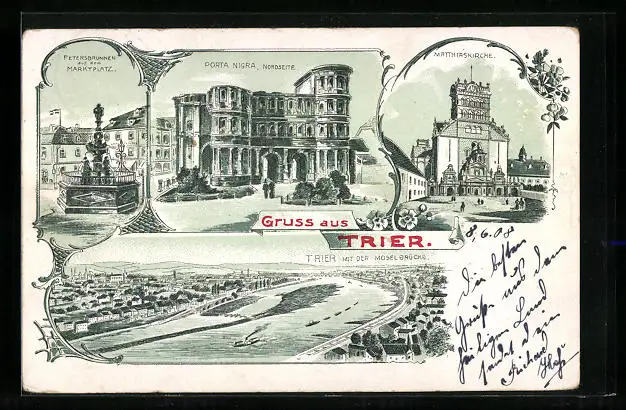 PETERSBRUNNEN
AUF DEM
MARKTPLATZ.
PORTA NIGRA, NORDSEITE.
MATTHIASKIRCHE.
GRUSS AUS
TRIER.
TRIER MIT DER MOSELBRÜCKE.
8.6.08
Die besten
Grüße aus dem
heiligen Land
sendet